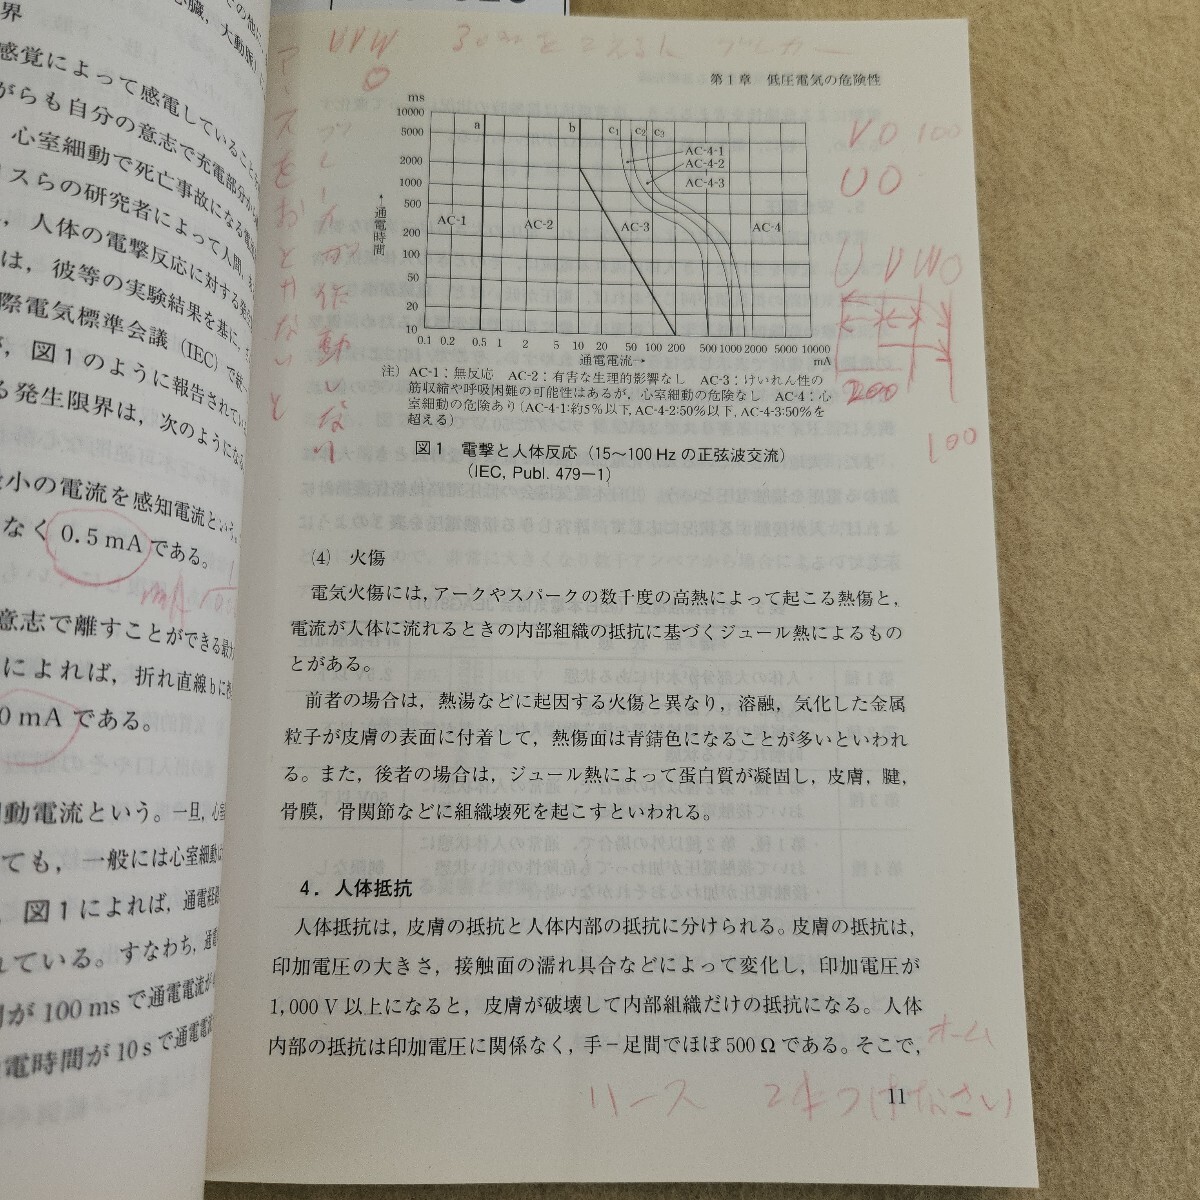 界
感覚によって感電していること
がらも自分の意志で充電部分から
心室細動で死亡事故になる電
スらの研究者によって人間，
人体の電撃反応に対する発
は，彼等の実験結果を基に，
際電気標準会議（IEC）で
図1のように報告されてい
る発生限界は，次のようになる
小の電流を感知電流という。
なく 0.5 mA である。
mA
意志で離すことができる最
によれば，折れ直線bに
0 mA である。
動電流という。一旦，心
ても，一般には心室細動
図1によれば，通電経
れている。すなわち，通
が 100 ms で通電電流が
電時間が 10 s で通電電流
アースをおとさないと
UVW
ブレーカが作動しない
第1章 低圧電気の危険性
ms
10000
5000
2000
1000
500
200
100
50
20
10
通電時間
a
b
c1 c2 c3
AC-4-1
AC-4-2
AC-4-3
AC-1 AC-2 AC-3 AC-4
0.1 0.2 0.5 1 2 5 10 20 50 100 200 500 1000 2000 5000 10000
通電電流→ mA
注）AC-1：無反応 AC-2：有害な生理的影響なし AC-3：けいれん性の
筋収縮や呼吸困難の可能性はあるが，心室細動の危険なし AC-4：心
室細動の危険あり（AC-4-1:約5％以下，AC-4-2:50％以下，AC-4-3:50％を
超える）
図1 電撃と人体反応（15～100 Hz の正弦波交流）
（IEC, Publ. 479－1）
VO 100
UO
UVWO
200
100
(4) 火傷
電気火傷には，アークやスパークの数千度の高熱によって起こる熱傷と，
電流が人体に流れるときの内部組織の抵抗に基づくジュール熱によるもの
とがある。
前者の場合は，熱湯などに起因する火傷と異なり，溶融，気化した金属
粒子が皮膚の表面に付着して，熱傷面は青錆色になることが多いといわれ
る。また，後者の場合は，ジュール熱によって蛋白質が凝固し，皮膚，腱，
骨膜，骨関節などに組織壊死を起こすといわれる。
4．人体抵抗
人体抵抗は，皮膚の抵抗と人体内部の抵抗に分けられる。皮膚の抵抗は，
印加電圧の大きさ，接触面の濡れ具合などによって変化し，印加電圧が
1,000 V 以上になると，皮膚が破壊して内部組織だけの抵抗になる。人体
内部の抵抗は印加電圧に関係なく，手－足間でほぼ 500 Ω である。そこで，
オーム
11